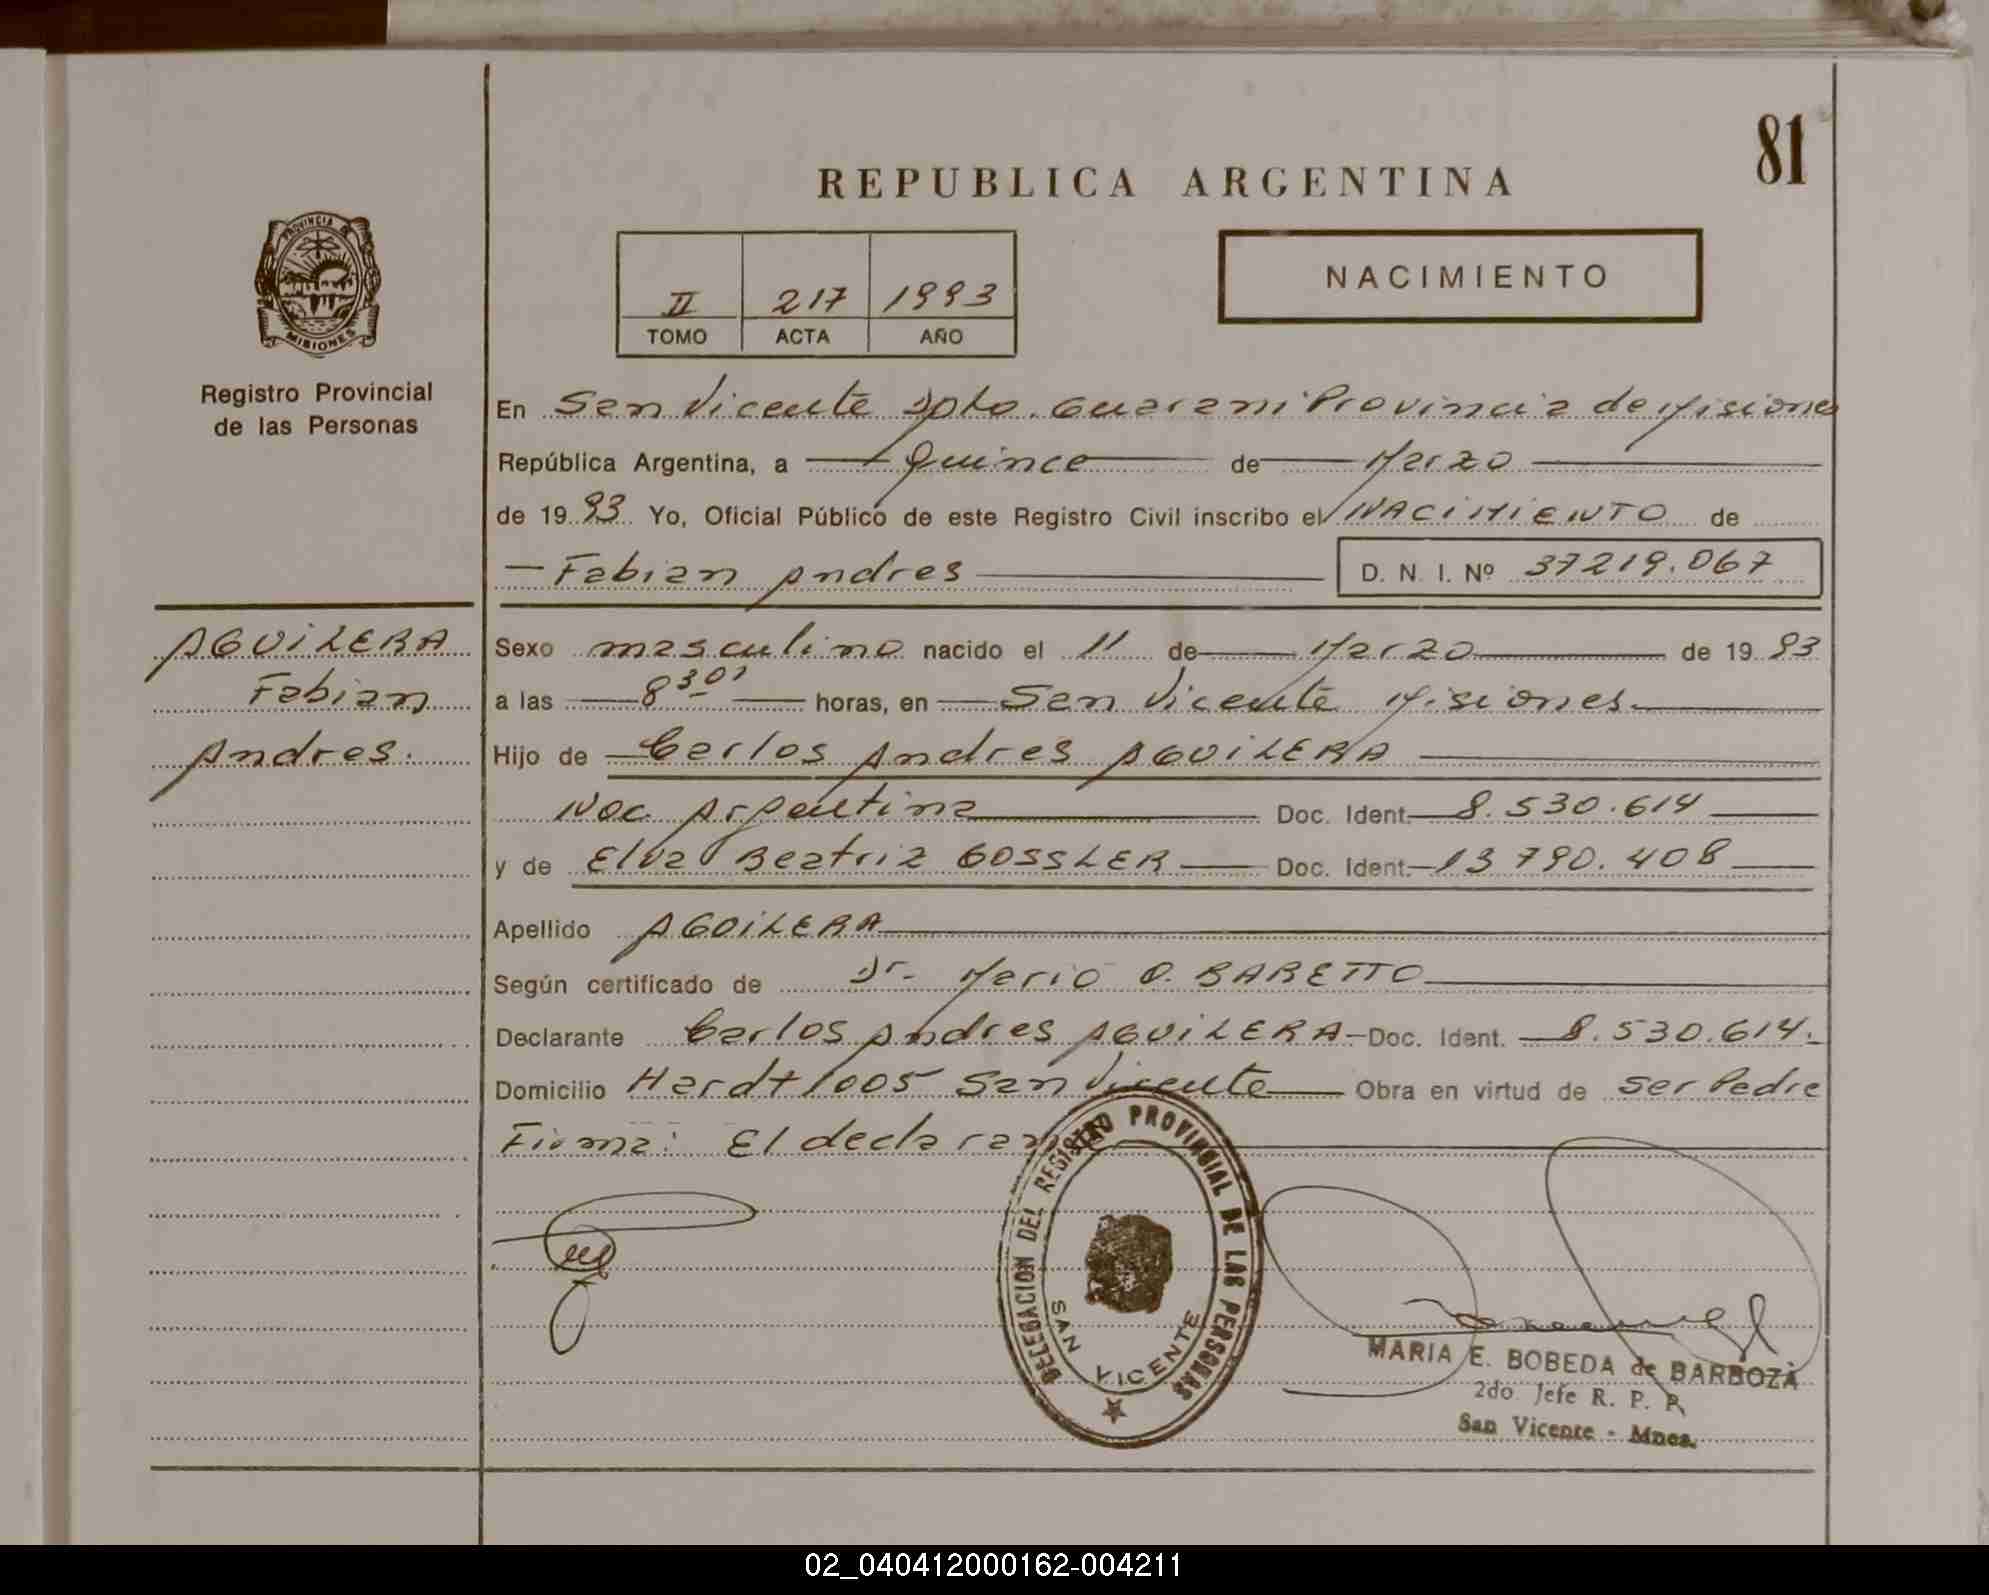 81
REPUBLICA ARGENTINA
PROVINCIA DE
MISIONES
NACIMIENTO
II 217 1993
TOMO ACTA AÑO
Registro Provincial
de las Personas
En San Vicente Dpto. Guarani Provincia de Misiones
República Argentina, a Quince de Marzo
de 1993 Yo, Oficial Público de este Registro Civil inscribo el NACIMIENTO de
Fabian Andres D. N. I. Nº 37219.067
AGUILERA
Fabian
Andres.
Sexo masculino nacido el 11 de Marzo de 1993
a las 8 30' horas, en San Vicente Misiones.
Hijo de Carlos Andres AGUILERA
Nac. Argentina Doc. Ident. 8.530.614
y de Elva Beatriz GOSSLER Doc. Ident. 13 790.408
Apellido AGUILERA
Según certificado de Dr. Mario O. BARETTO
Declarante Carlos Andres AGUILERA Doc. Ident. 8.530.614.
Domicilio Hardt 1005 San Vicente Obra en virtud de ser Padre
Firma: El declarante
DELEGACION DEL REGISTRO PROVINCIAL DE LAS PERSONAS
SAN VICENTE
MARIA E. BOBEDA de BARBOZA
2do Jefe R. P. P.
San Vicente - Mnes.
02_040412000162-004211